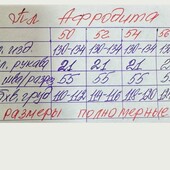 Афродита
50 52 54 56
л. изд. 130-134 130-134 130-134 130
л. рукав 21 21 21 2
55 55 55 55
бхв. груд 110-112 114-116 118-120
размеры полномерные